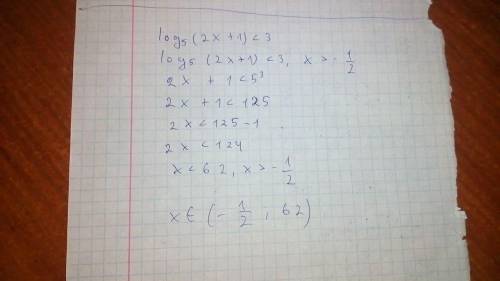 log₅(2x+1)<3
log₅(2x+1)<3, x>-1/2
2x + 1<5³
2x + 1<125
2x<125-1
2x<124
x<62, x>-1/2
x∈(-1/2, 62)